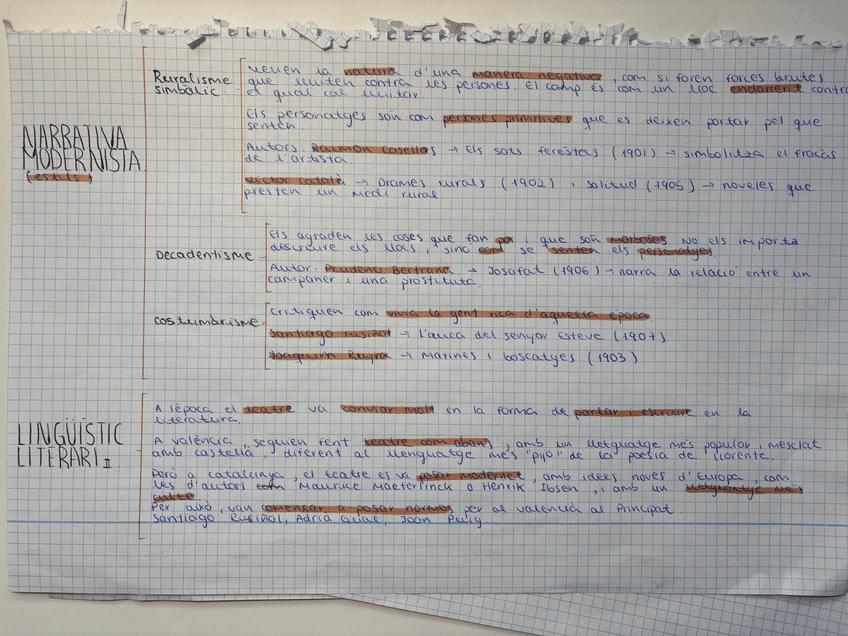 NARRATIVA
MODERNISTA
(estils)
Ruralisme
simbòlic:
veuen la natura d'una manera negativa, com si foren forces brutes
que lluiten contra les persones. El camp és com un lloc endarrerit contra
el qual cal lluitar.
Els personatges són com persones primitives que es deixen portar pel que
senten.
Autors: Raimon Casellas → Els sots feréstecs (1901) → simbolitza el fracàs
de l'artista.
Víctor català → Drames rurals (1902) i solitud (1905) → noveles que
presten un medi rural.
Decadentisme:
Els agraden les coses que fan por i que són morboses No els importa
descriure els llocs, sinó com se senten els personatges.
Autor: Prudenci Bertrana → Josafat (1906) → narra la relació entre un
campaner i una prostituta.
costumbrisme:
Critiquen com vivia la gent rica d'aquella època
Santiago Rusiñol → l'auca del senyor Esteve (1907)
Joaquim Ruyra → Marines i boscatges (1903)
LINGÜÍSTIC
LITERARI II
A l'època el teatre va canviar molt en la forma de parlar i escriure en la
literatura.
A valència, seguien fent teatre com abans, amb un lletguatge més popular i mesclat
amb castellà, diferent al llenguatge més "pijo" de la poesia de llorente.
Però a catalunya, el teatre es va posar modernet, amb idees noves d'Europa, com
les d'autors com Maurice Maeterlinck o Henrik Ibsen, i amb un lletguantge més
culte.
Per això, van començar a posar normes per al valencià al Principat.
Santiago Rusiñol, Adrià Gual, Joan Puig